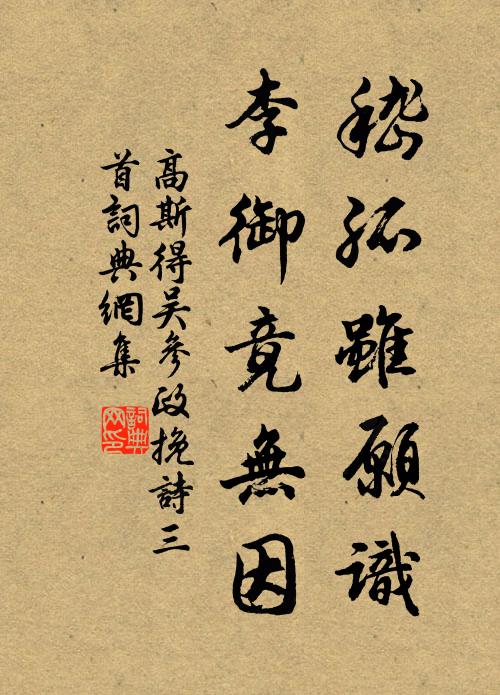 嵇孤雖願識
李御竟無因
高斯得吴參政挽詩三
首詞典網集
詞典
网印